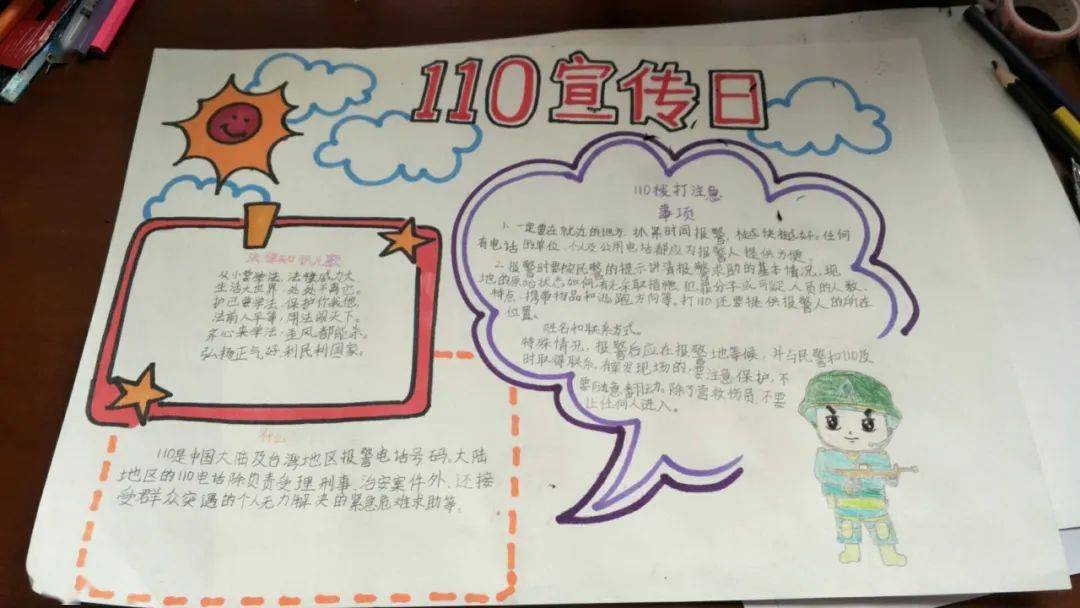 110宣传日
法律知识儿歌
从小要学法,法律威力大。
生活大世界,处处不离它。
护己要学法,保护你我他。
法前人平等,用法闯天下。
齐心来学法,歪风都能杀。
弘扬正气好,利民利国家。
110拨打注意
事项
1.一定要在就近的地方,抓紧时间报警,越快越好。任何
有电话的单位、个人及公用电话都应为报警人提供方便。
2.报警时要按民警的提示讲清报警求助的基本情况,现
地的原始状态如何,有无采取措施,犯罪分子或可疑人员的人数、
特点、携带物品和逃跑方向等。打110还要提供报警人的所在
位置、
姓名和联系方式。
特殊情况,报警后应在报警地等候,并与民警和110及
时取得联系,有案发现场的,要注意保护,不
要随意翻动。除了营救伤员,不要
让任何人进入。
什么
110是中国大陆及台湾地区报警电话号码。大陆
地区的110电话除负责受理刑事、治安案件外,还接
受群众突遇的个人无力解决的紧急危难求助等。